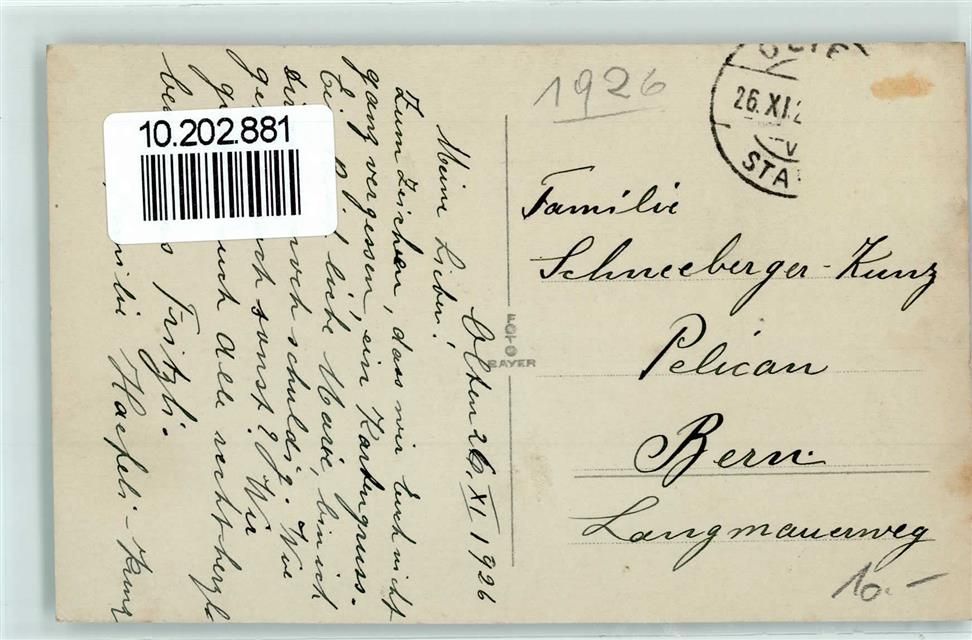 10.202.881
1926
OLTEN
26.XI.2
V
STA
Olten 26. XI 1926
Meine Lieben!
Zum Zeichen, dass wir Euch nicht
ganz vergessen, ein Kartengruss.
liebe Marie, bin ich
noch schuldig. Wie
sonst? Wir
Euch alle recht herzl
Fritzli.
Haefeli-Kunz
FOTO
BAYER
Familie
Schneeberger-Kunz
Pelican
Bern.
Langmauerweg
10.-